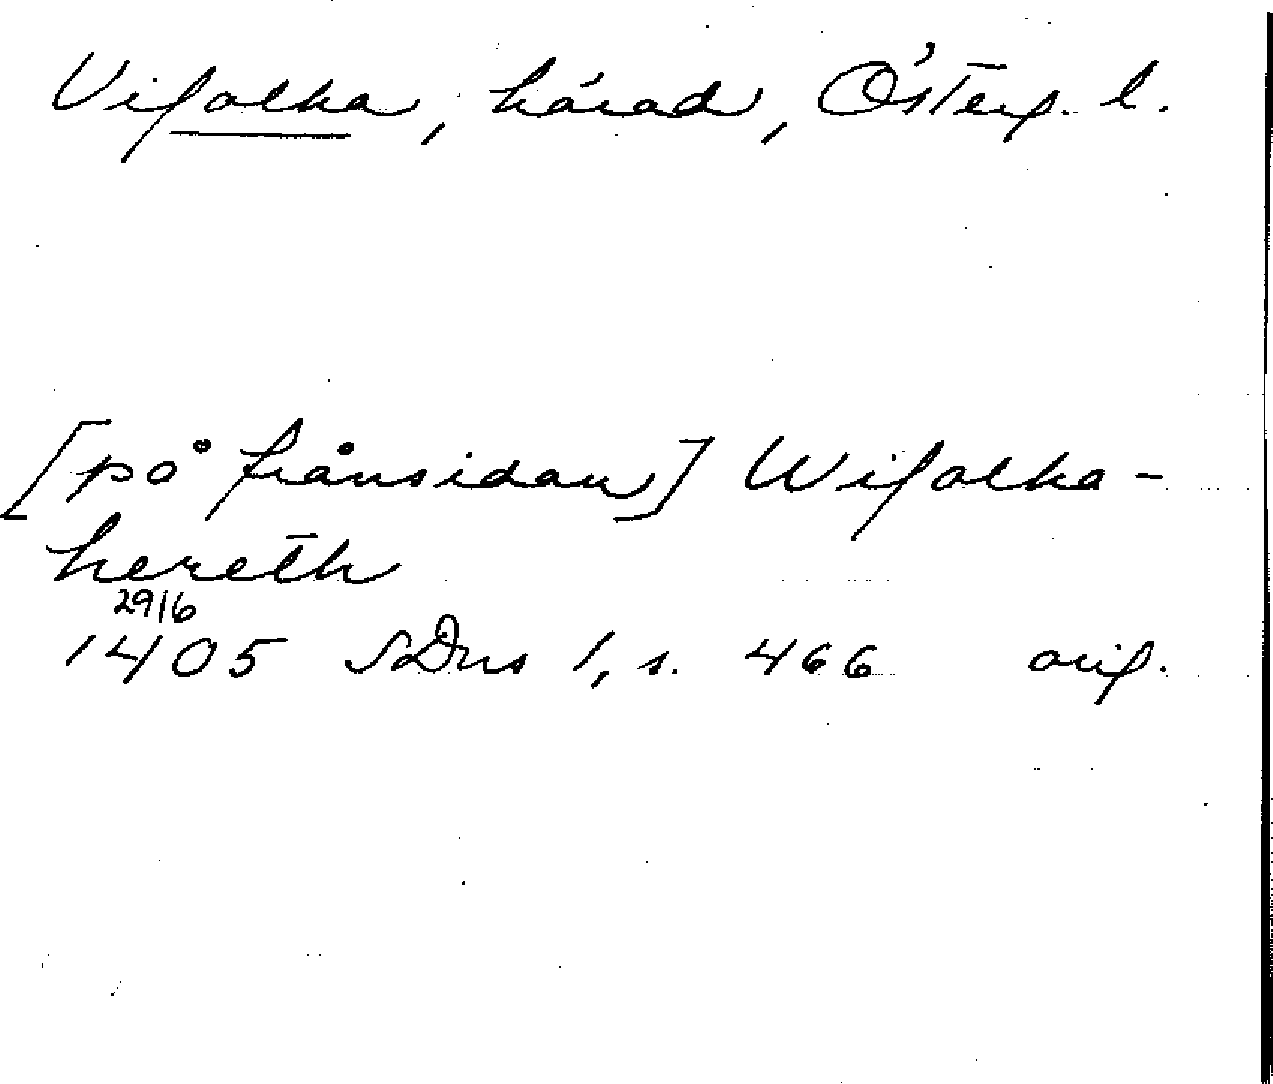 Vifolka, härad, Österg. l.
[på frånsidan] Wifolka-
hereth
29/6
1405 SDns 1, s. 466 orig.